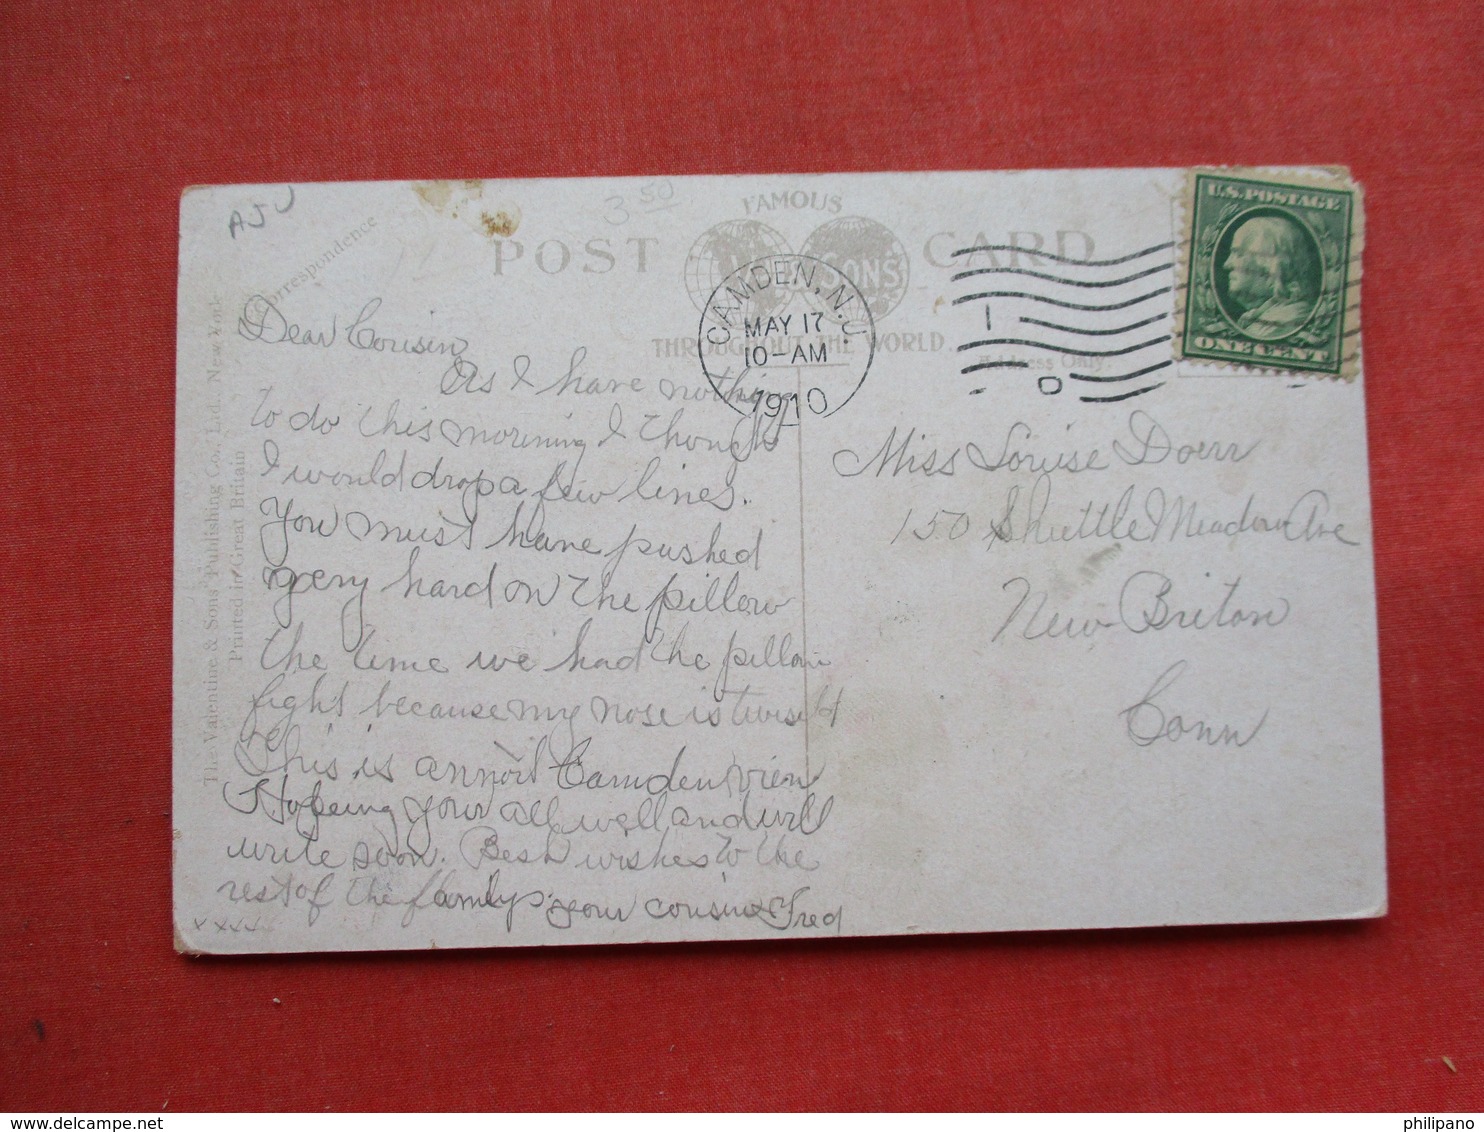 AJU
3 50
FAMOUS
POST CARD
SONS
THROUGHOUT THE WORLD.
Correspondence
Address Only.
CAMDEN, N.J.
MAY 17
10-AM
1910
U.S. POSTAGE
ONE CENT
Dear Cousin
As I have nothing
to do this morning I thought
I would drop a few lines.
You must have pushed
very hard on the pillow
the time we had the pillow
fight because my nose is
This is Camden view
Hopeing your all well and will
write soon. Best wishes to the
rest of the family. your cousin Fred
xxxx
Miss Louise Doerr
150 Shuttle Meadow Ave
New Briton
Conn
The Valentine & Sons' Publishing Co., Ltd., New York
Printed in Great Britain
philipano